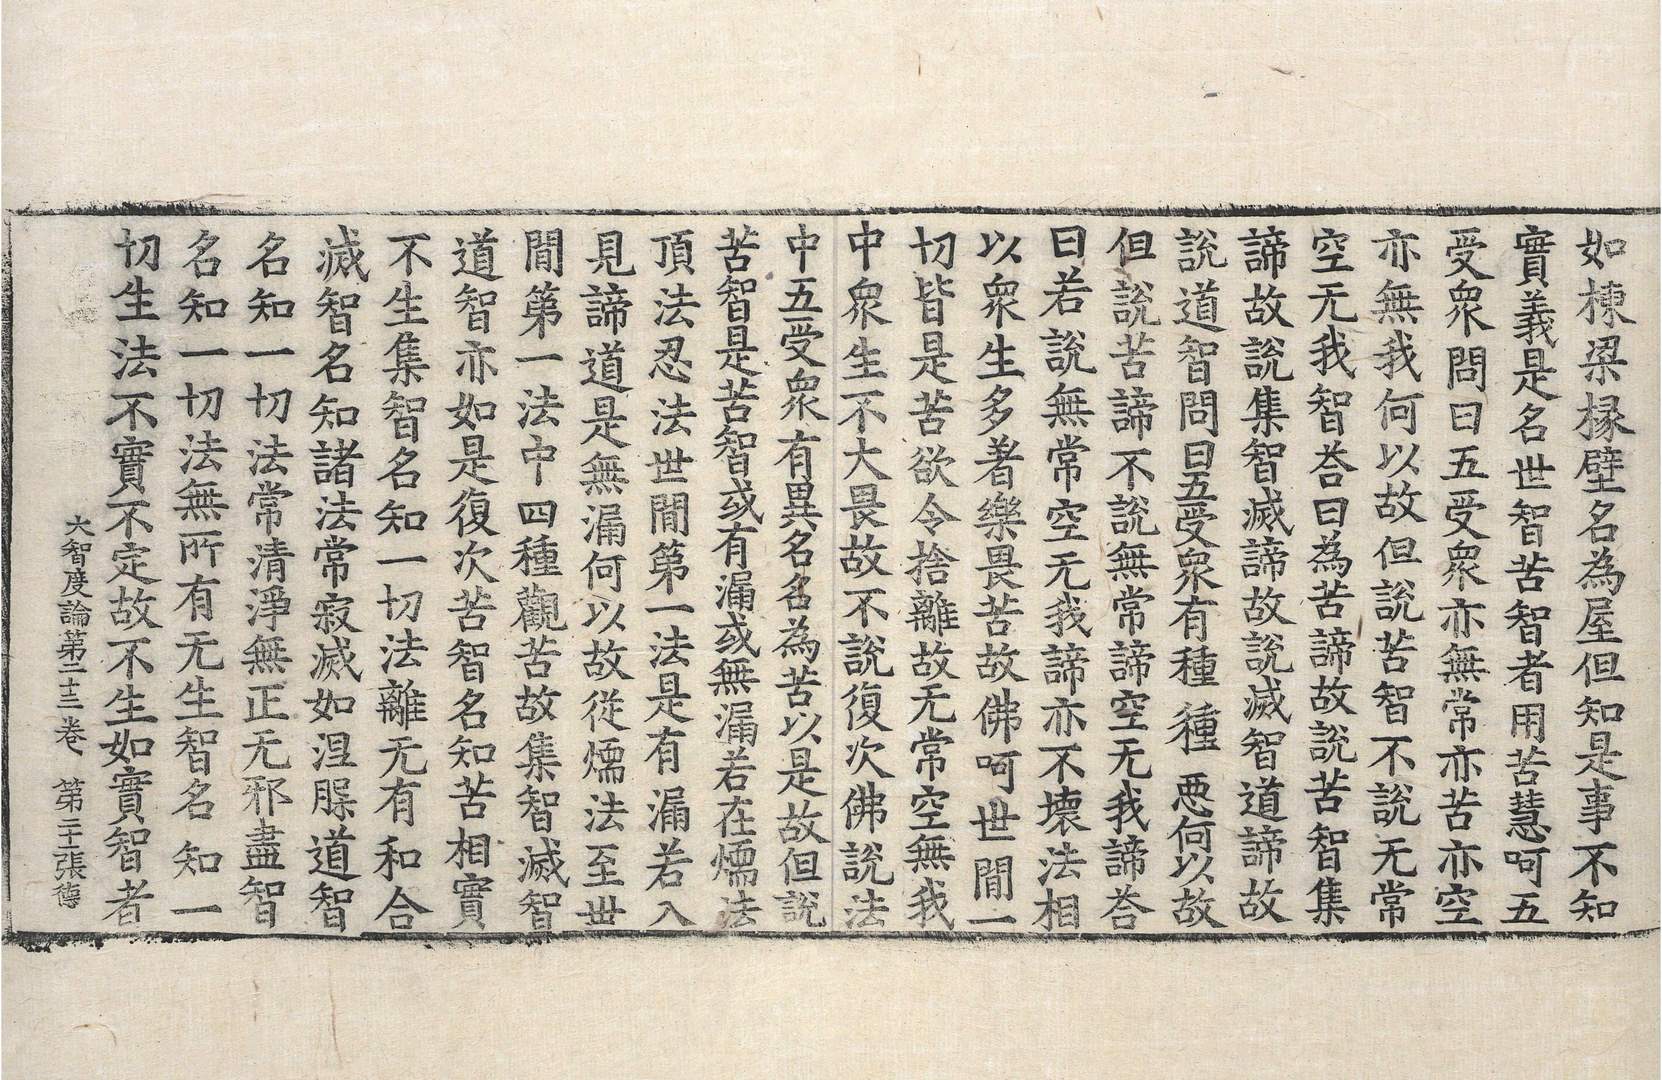 如棟梁椽壁名為屋但知是事不知
實義是名世智苦智者用苦慧呵五
受衆問曰五受衆亦無常亦苦亦空
亦無我何以故但說苦智不說无常
空无我智荅曰為苦諦故說苦智集
諦故說集智滅諦故說滅智道諦故
說道智問曰五受衆有種種惡何以故
但說苦諦不說無常諦空无我諦荅
曰若說無常空无我諦亦不壞法相
以衆生多著樂畏苦故佛呵世間一
切皆是苦欲令捨離故无常空無我
中衆生不大畏故不說復次佛說法
中五受衆有異名名為苦以是故但說
苦智是苦智或有漏或無漏若在煗法
頂法忍法世間第一法是有漏若入
見諦道是無漏何以故從煗法至世
間第一法中四種觀苦故集智滅智
道智亦如是復次苦智名知苦相實
不生集智名知一切法離无有和合
滅智名知諸法常寂滅如涅槃道智
名知一切法常清淨無正无邪盡智
名知一切法無所有无生智名知一
切生法不實不定故不生如實智者
大智度論第二十三卷 第二十張傳